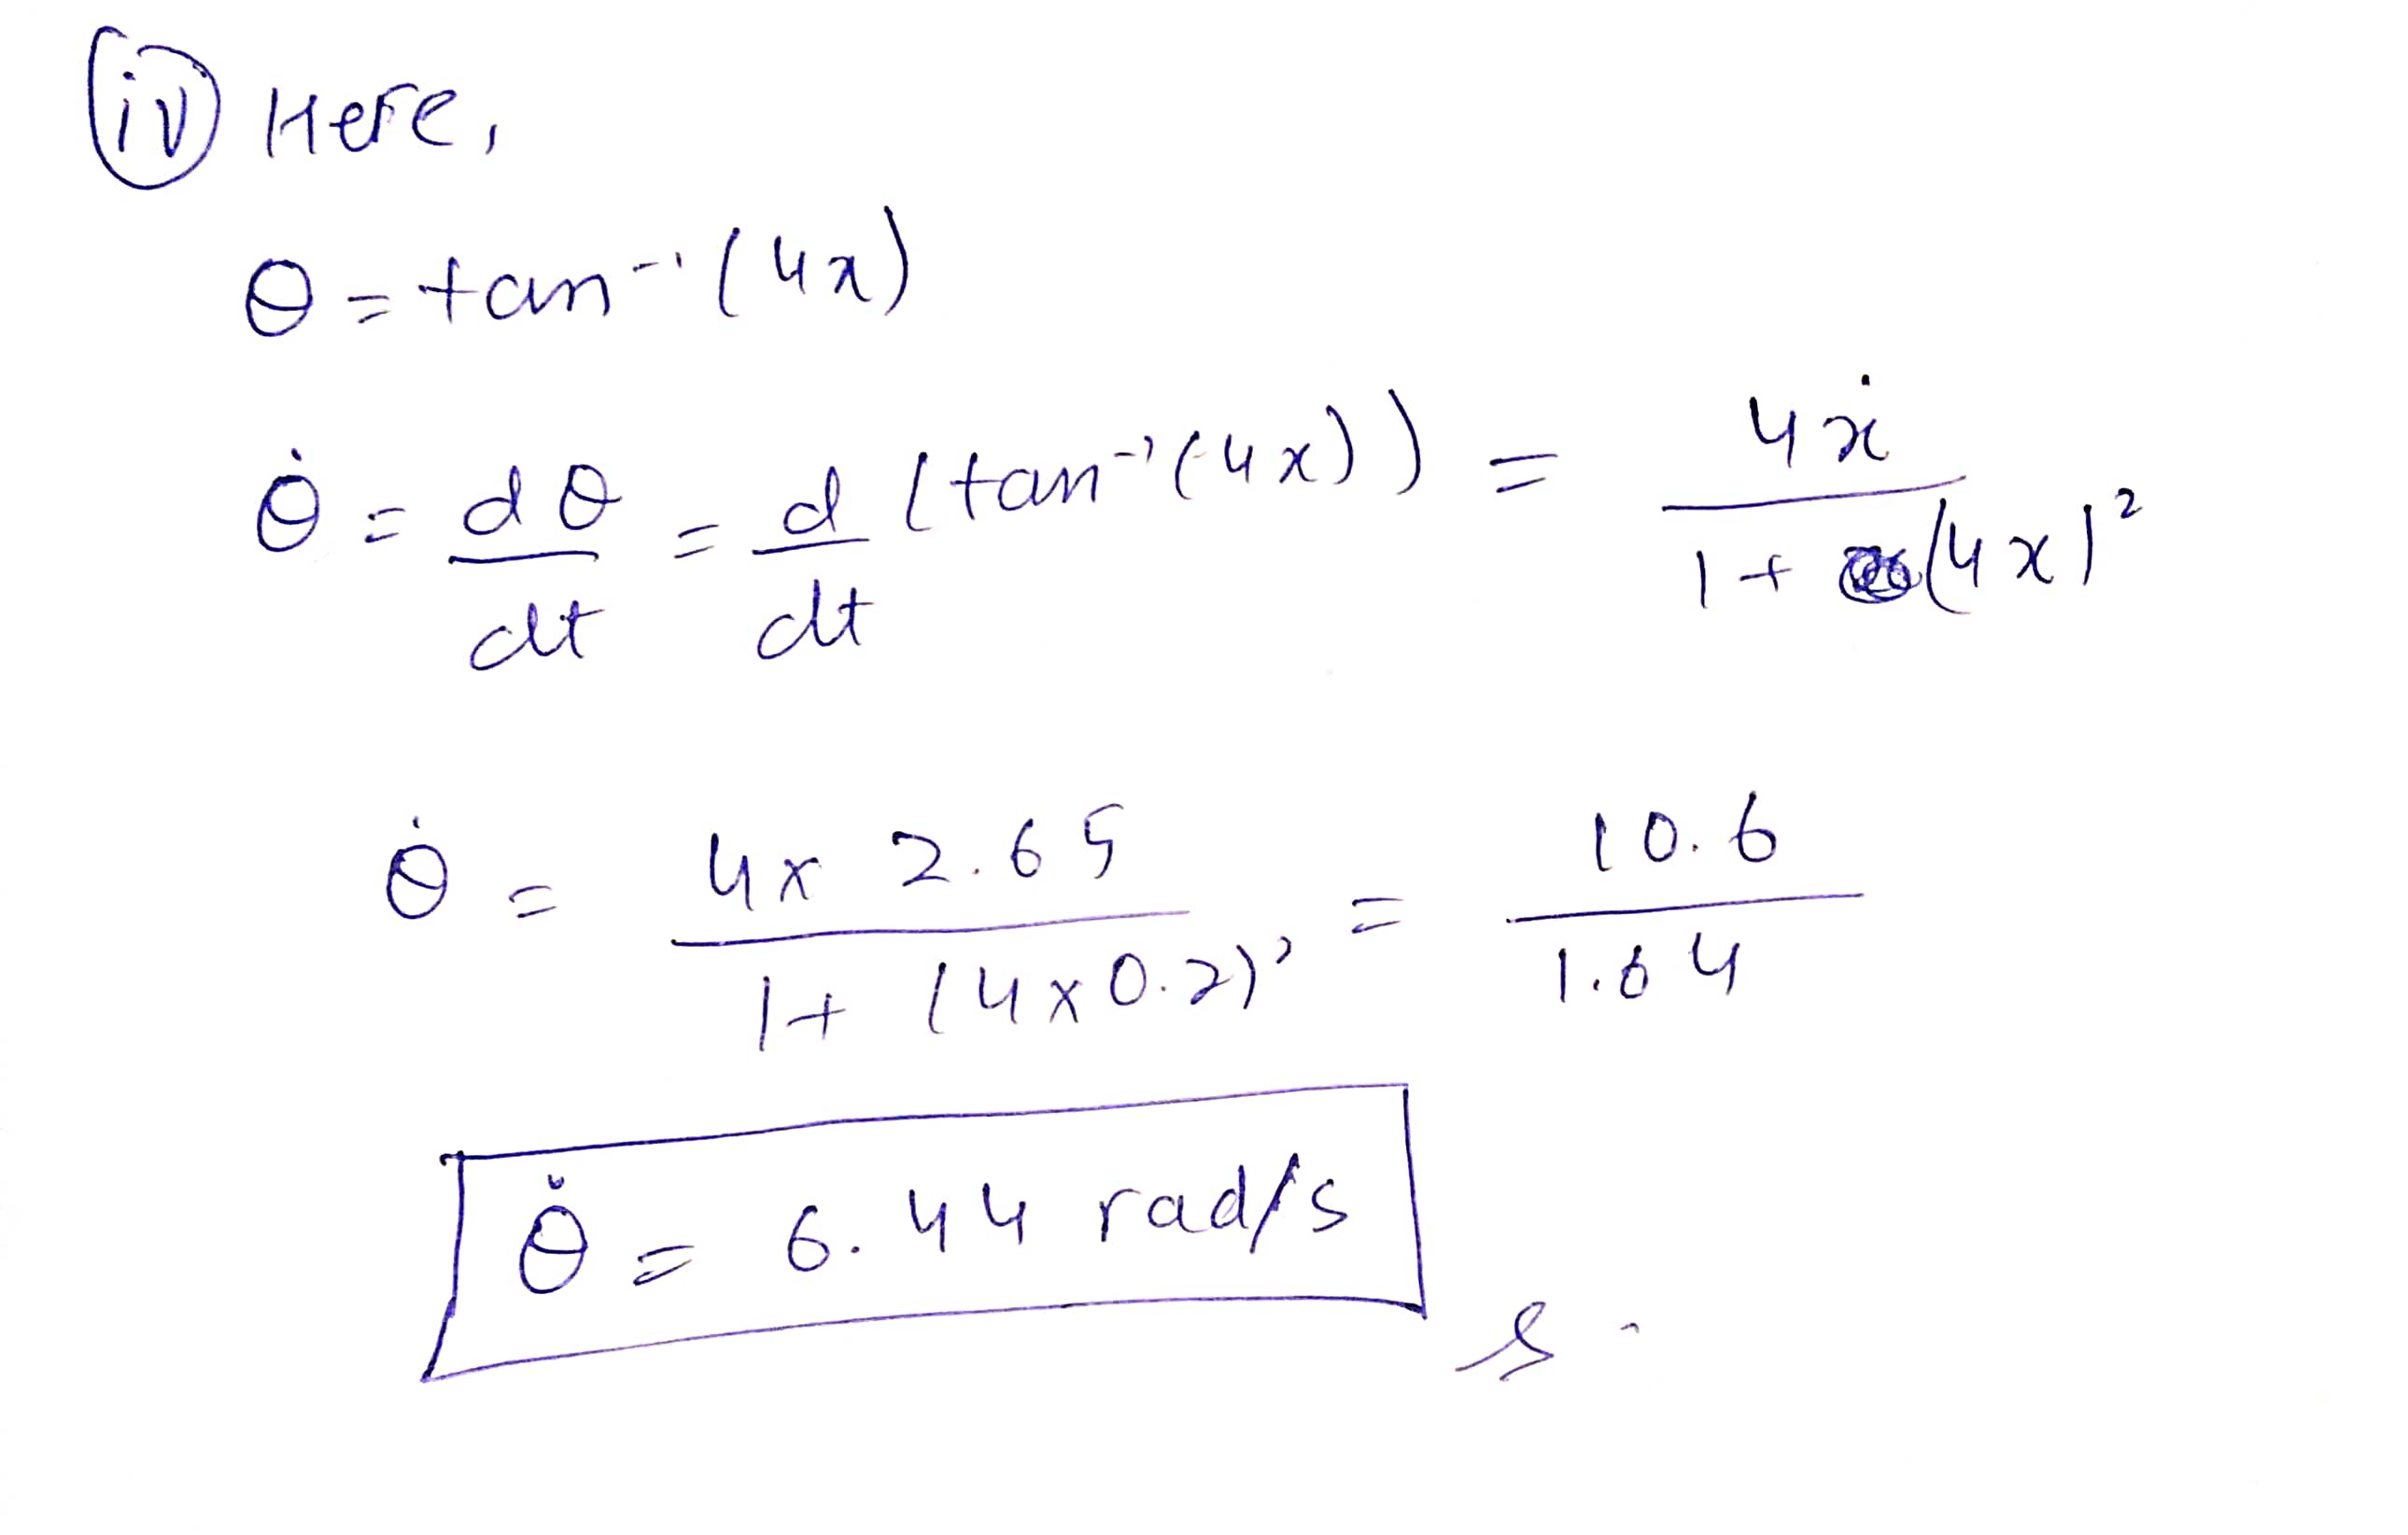 (iv) Here,
θ = tan⁻¹(4x)
θ̇ = dθ/dt = d/dt (tan⁻¹(4x)) = 4ẋ / 1 + (4x)²
θ̇ = 4 x 2.65 / 1 + (4 x 0.2)² = 10.6 / 1.64
θ̇ = 6.44 rad/s